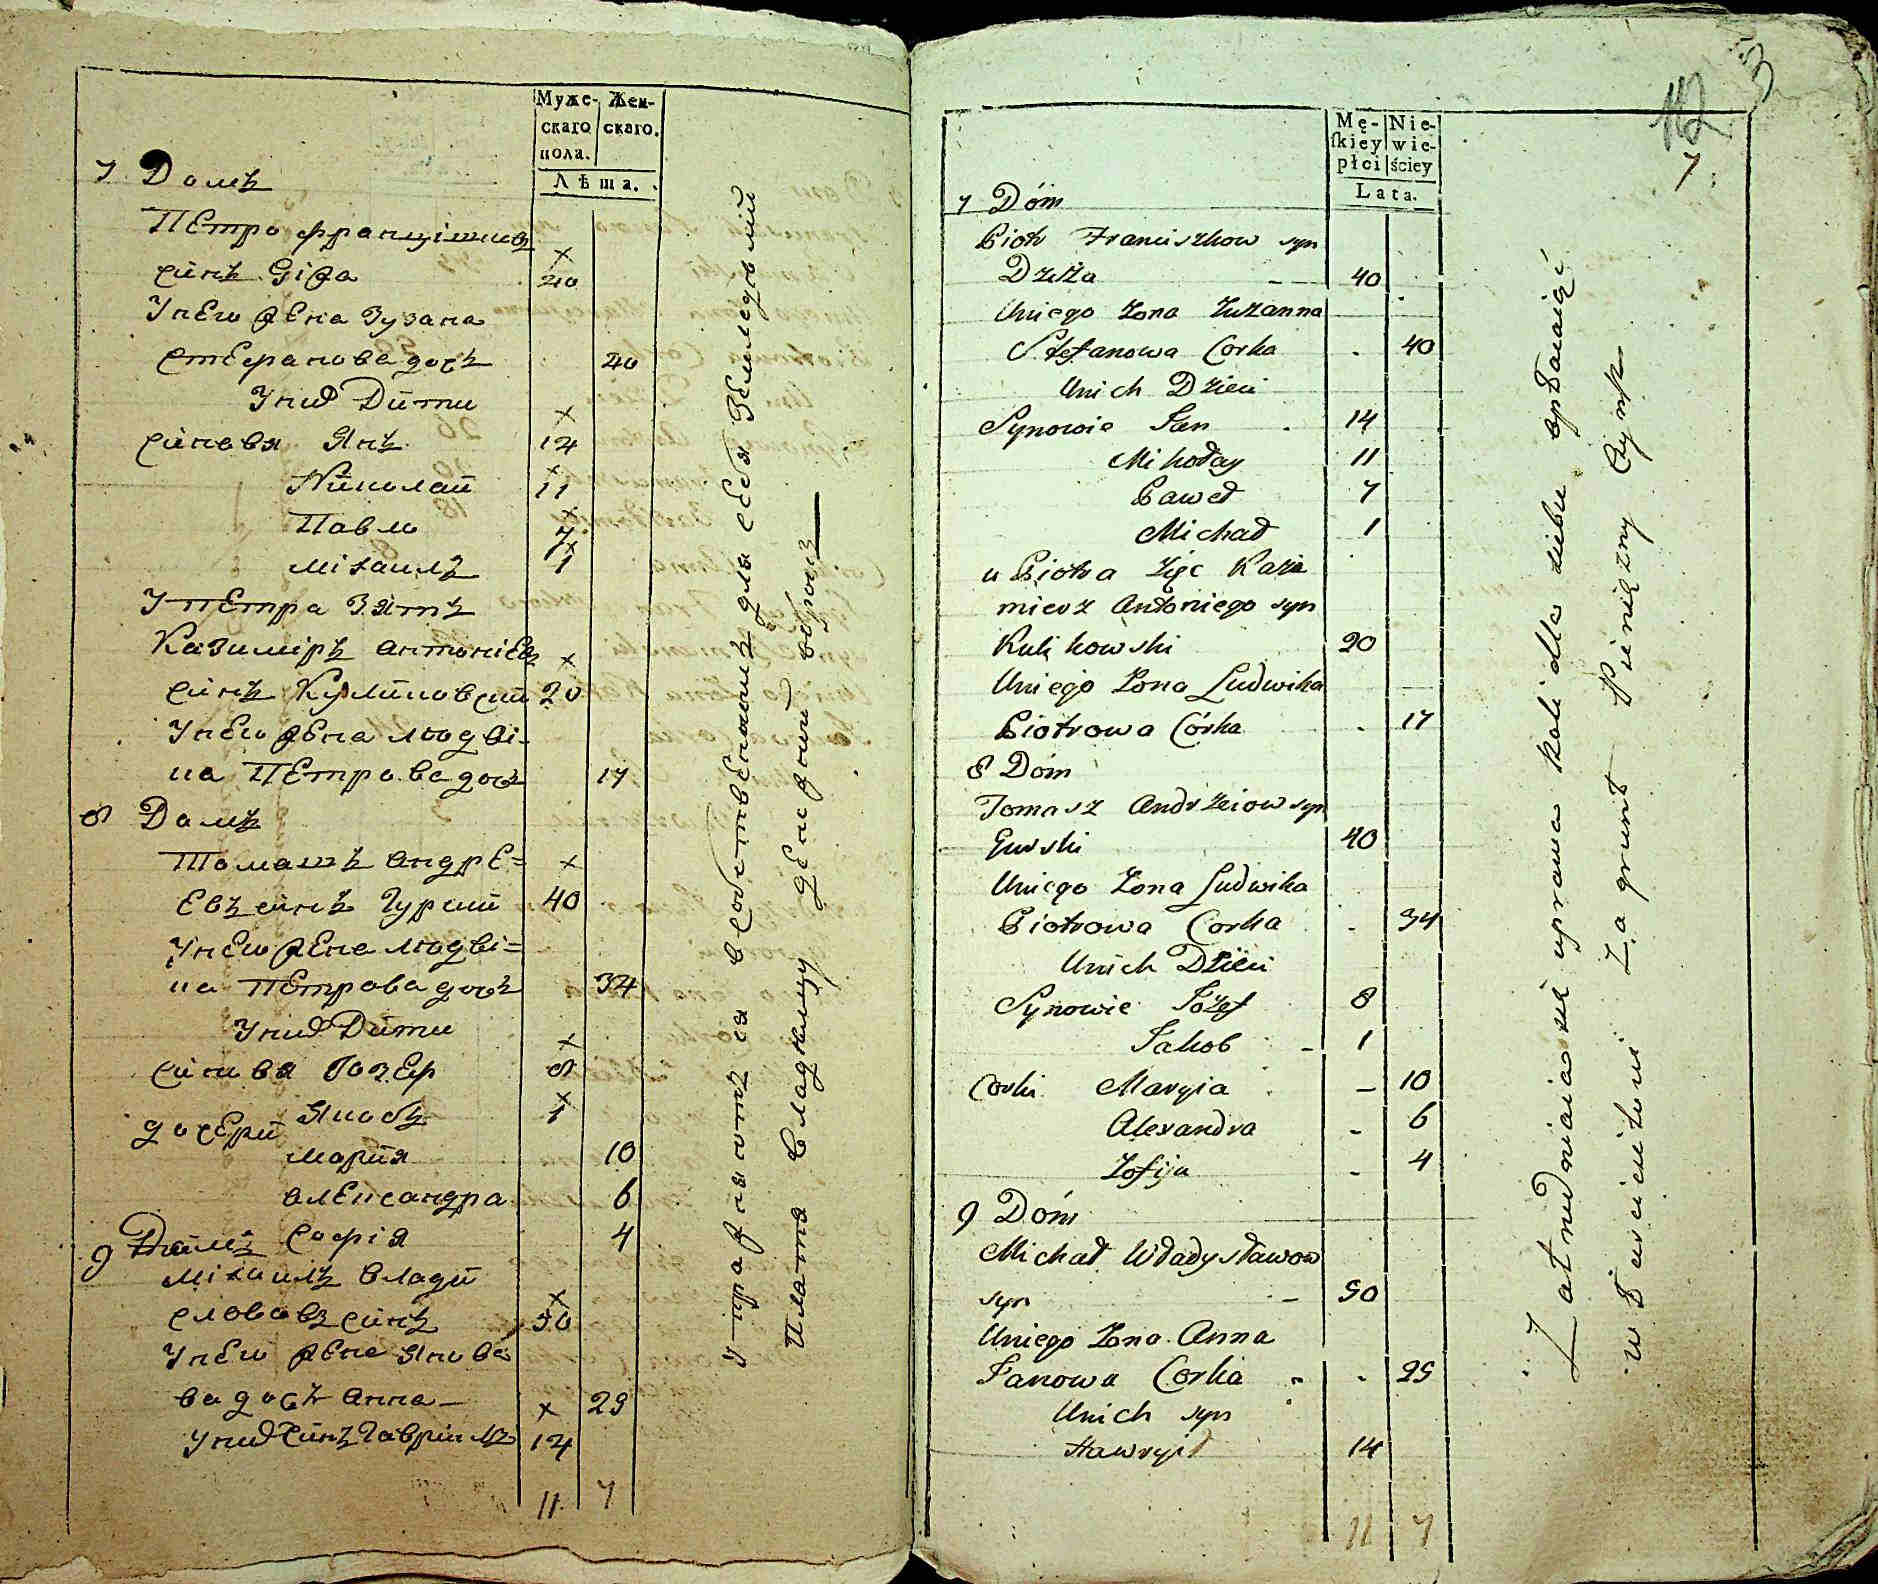 Муже-
скаго
пола.
Жен-
скаго.
Лѣта.
7 Домъ
Петро Францишковъ
синъ Giжа
20
Унего жена Зузана
Стефанова досъ 20
Унихъ Дити
синовя Янъ 14
Николай 11
Павло 7
Міхаилъ 1
У Петра Зять
Казимиръ Антоніевъ
синъ Куликовский 20
Унего жена Людві-
ка Петрова досъ 17
8 Домъ
Томашъ Андре=
евъ синъ Гурский 40
Унего жена Людві=
ка Петрова досъ 34
Унихъ Дити
синовя Іозеф 8
Якобъ 1
дочери
Мария 10
Александра 6
Софія 4
9 Домъ
Міхаилъ Влади
славовъ синъ 50
Унего жена Яно
ва досъ Анна 29
Унихъ Синъ Гавриилъ 14
11 7
Упражняются в собственномъ для себя Земледѣлій
Плата владѣльцу денежний
112
3
7
Mę-
skiey
płci
Nie-
wie-
ściey
Lata.
7 Dóm
Piotr Franciszkow syn
Dzża 40
Uniego Zona Zuzanna
Stefanowa Corka 40
Unich Dzieci
Synowie Jan 14
Mikołay 11
Paweł 7
Michał 1
u Piotra Zięc Kazi
mierz Antoniego syn
Kulikowski 20
Uniego Zona Ludwika
Piotrowa Córka 17
8 Dóm
Tomasz Andrzeiow syn
Gurski 40
Uniego Zona Ludwika
Piotrowa Corka 34
Unich Dzieci
Synowie Józef 8
Jakob 1
Corki Maryia 10
Alexandra 6
Zofija 4
9 Dóm
Michał Władysławow
syn 50
Uniego Zona Anna
Janowa Corka 29
Unich syn
Hawrył 14
11 7
Zatrudniaią się uprawa Roli dla siebie
włascicielowi Za grunt Pieniężny Czynsz